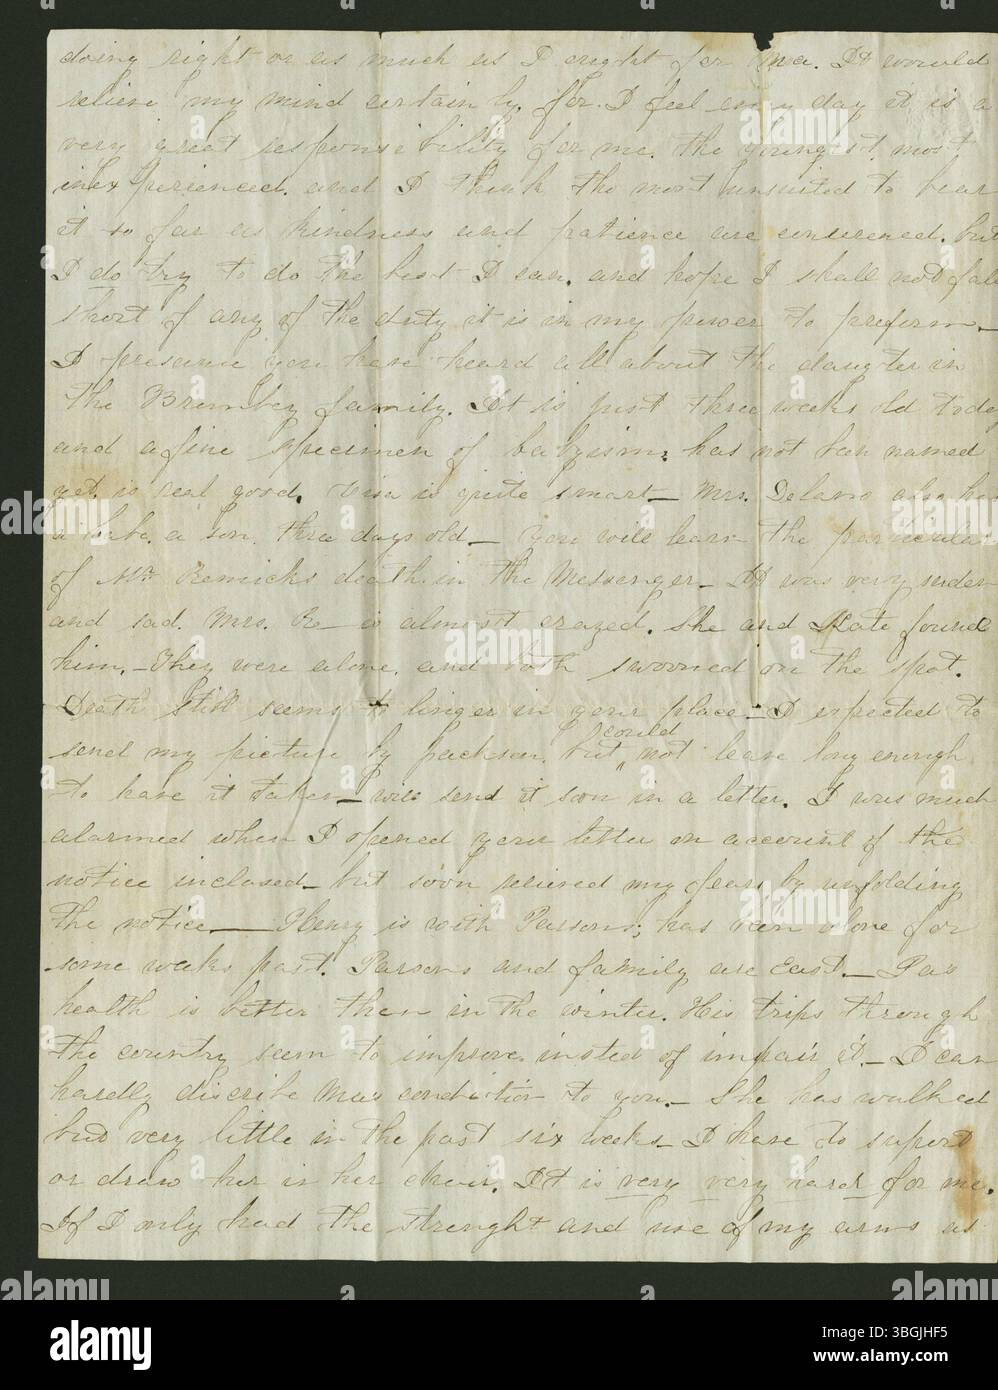 doing right or as much as I ought for Ma. It would
relieve my mind certainly, for I feel every day it is a
very great responsibility for me. The youngest, most
inexperienced. and I think the most unsuited to bear
it so far as kindness and patience are concerned. but
I do try to do the best I can. and hope I shall not fall
short of any of the duty it is in my power to preform_
I presume you have heard all about the daughter in
the Brembey family. It is just three weeks old today
and a fine specimen of babyism; has not been named
yet. is real good. is quite smart_ Mrs. Delano also has
a babe, a son, three days old_ You will learn the particulars
of Mr Remicks death in the Messenger_ It was very suden
and sad. Mrs. Re_ is almost crazed. She and Kate found
him,_ They were alone, and both swooned on the spot.
Death still seems to linger in your place_ I expected to
send my picture by Jackson, but could not leave long enough
to have it taken_ will send it soon in a letter. I was much
alarmed when I opened your letter on account of the
notice inclosed_ but soon relieved my fears by unfolding
the notice_ Henry is with Parsons; has been alone for
some weeks past. Parsons and family are East_ Pa's
health is better then in the winter. His trips through
the country seem to improve insted of impair it_ I can
hardly discribe Mas condition to you_ She has walked
but very little in the past six weeks_ I have to suport
or draw her in her chair. It is very very hard for me.
If I only had the strenght and use of my arms as
alamy
Image ID: 3BGJHF5
www.alamy.com